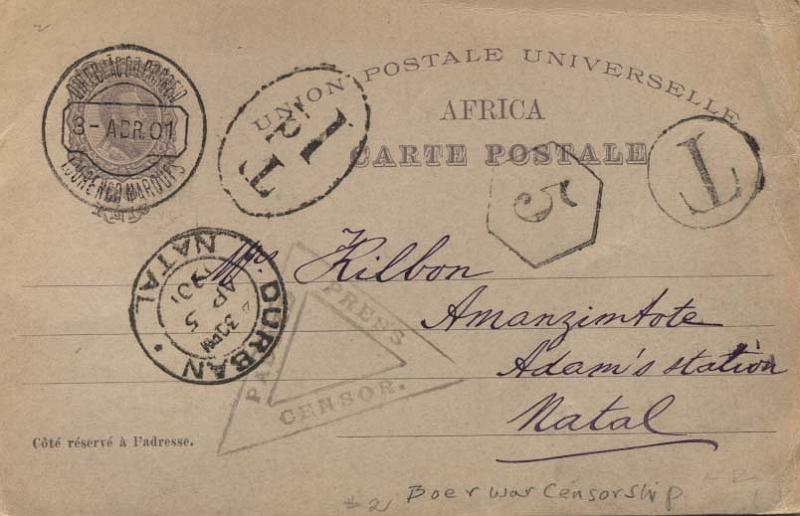 UNION POSTALE UNIVERSELLE
AFRICA
CARTE POSTALE
3-ABR.01
LOURENCO MARQUES
1
D
T
5
T
Mrs. Kilbon
Amanzimtote
Adam's station
Natal
DURBAN NATAL
AP 5
1901
4 30PM
PRESS
CENSOR.
Côté réservé à l'adresse.
#2 Boer war Censorship